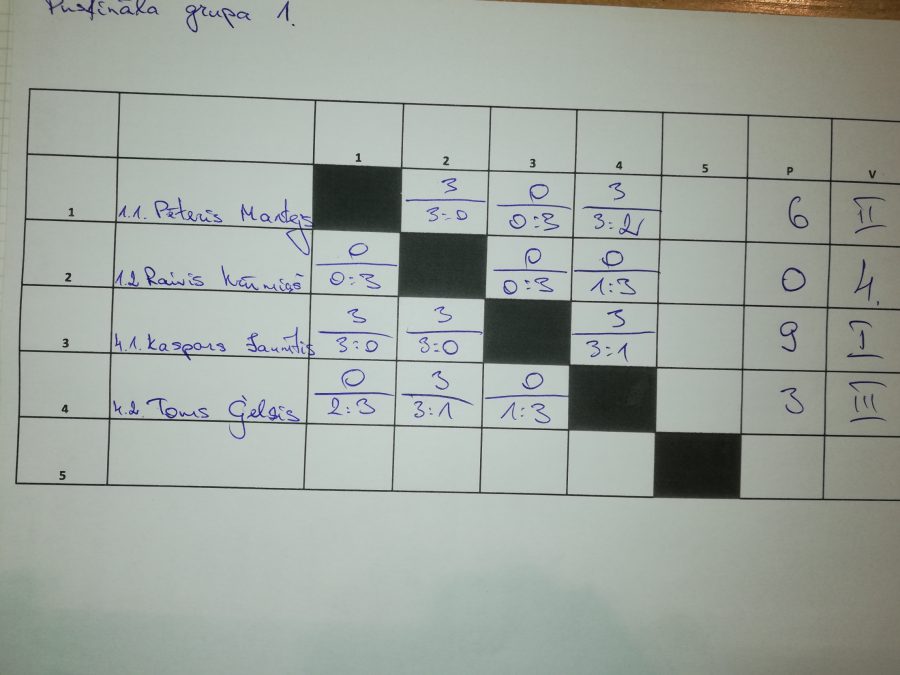 Pusfināla grupa 1.
1 2 3 4 5 P V
1 1.1. Pēteris 3 3:0 0 0:3 3 3:2 6 II
2 1.2 Raivis 0 0:3 0 0:3 0 1:3 0 4.
3 4.1. Kaspars 3 3:0 3 3:0 3 3:1 9 I
4 4.2. Toms 0 2:3 3 3:1 0 1:3 3 III
5